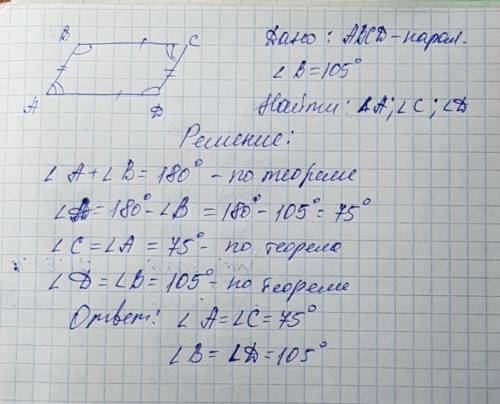 B C
A D
Дано: ABCD-парал.
∠B=105°
Найти: ∠A; ∠C; ∠D
Решение:
∠A+∠B=180° - по теореме
∠A=180°-∠B=180°-105°=75°
∠C=∠A=75°- по теореме
∠D=∠B=105°- по теореме
Ответ: ∠A=∠C=75°
∠B=∠D=105°